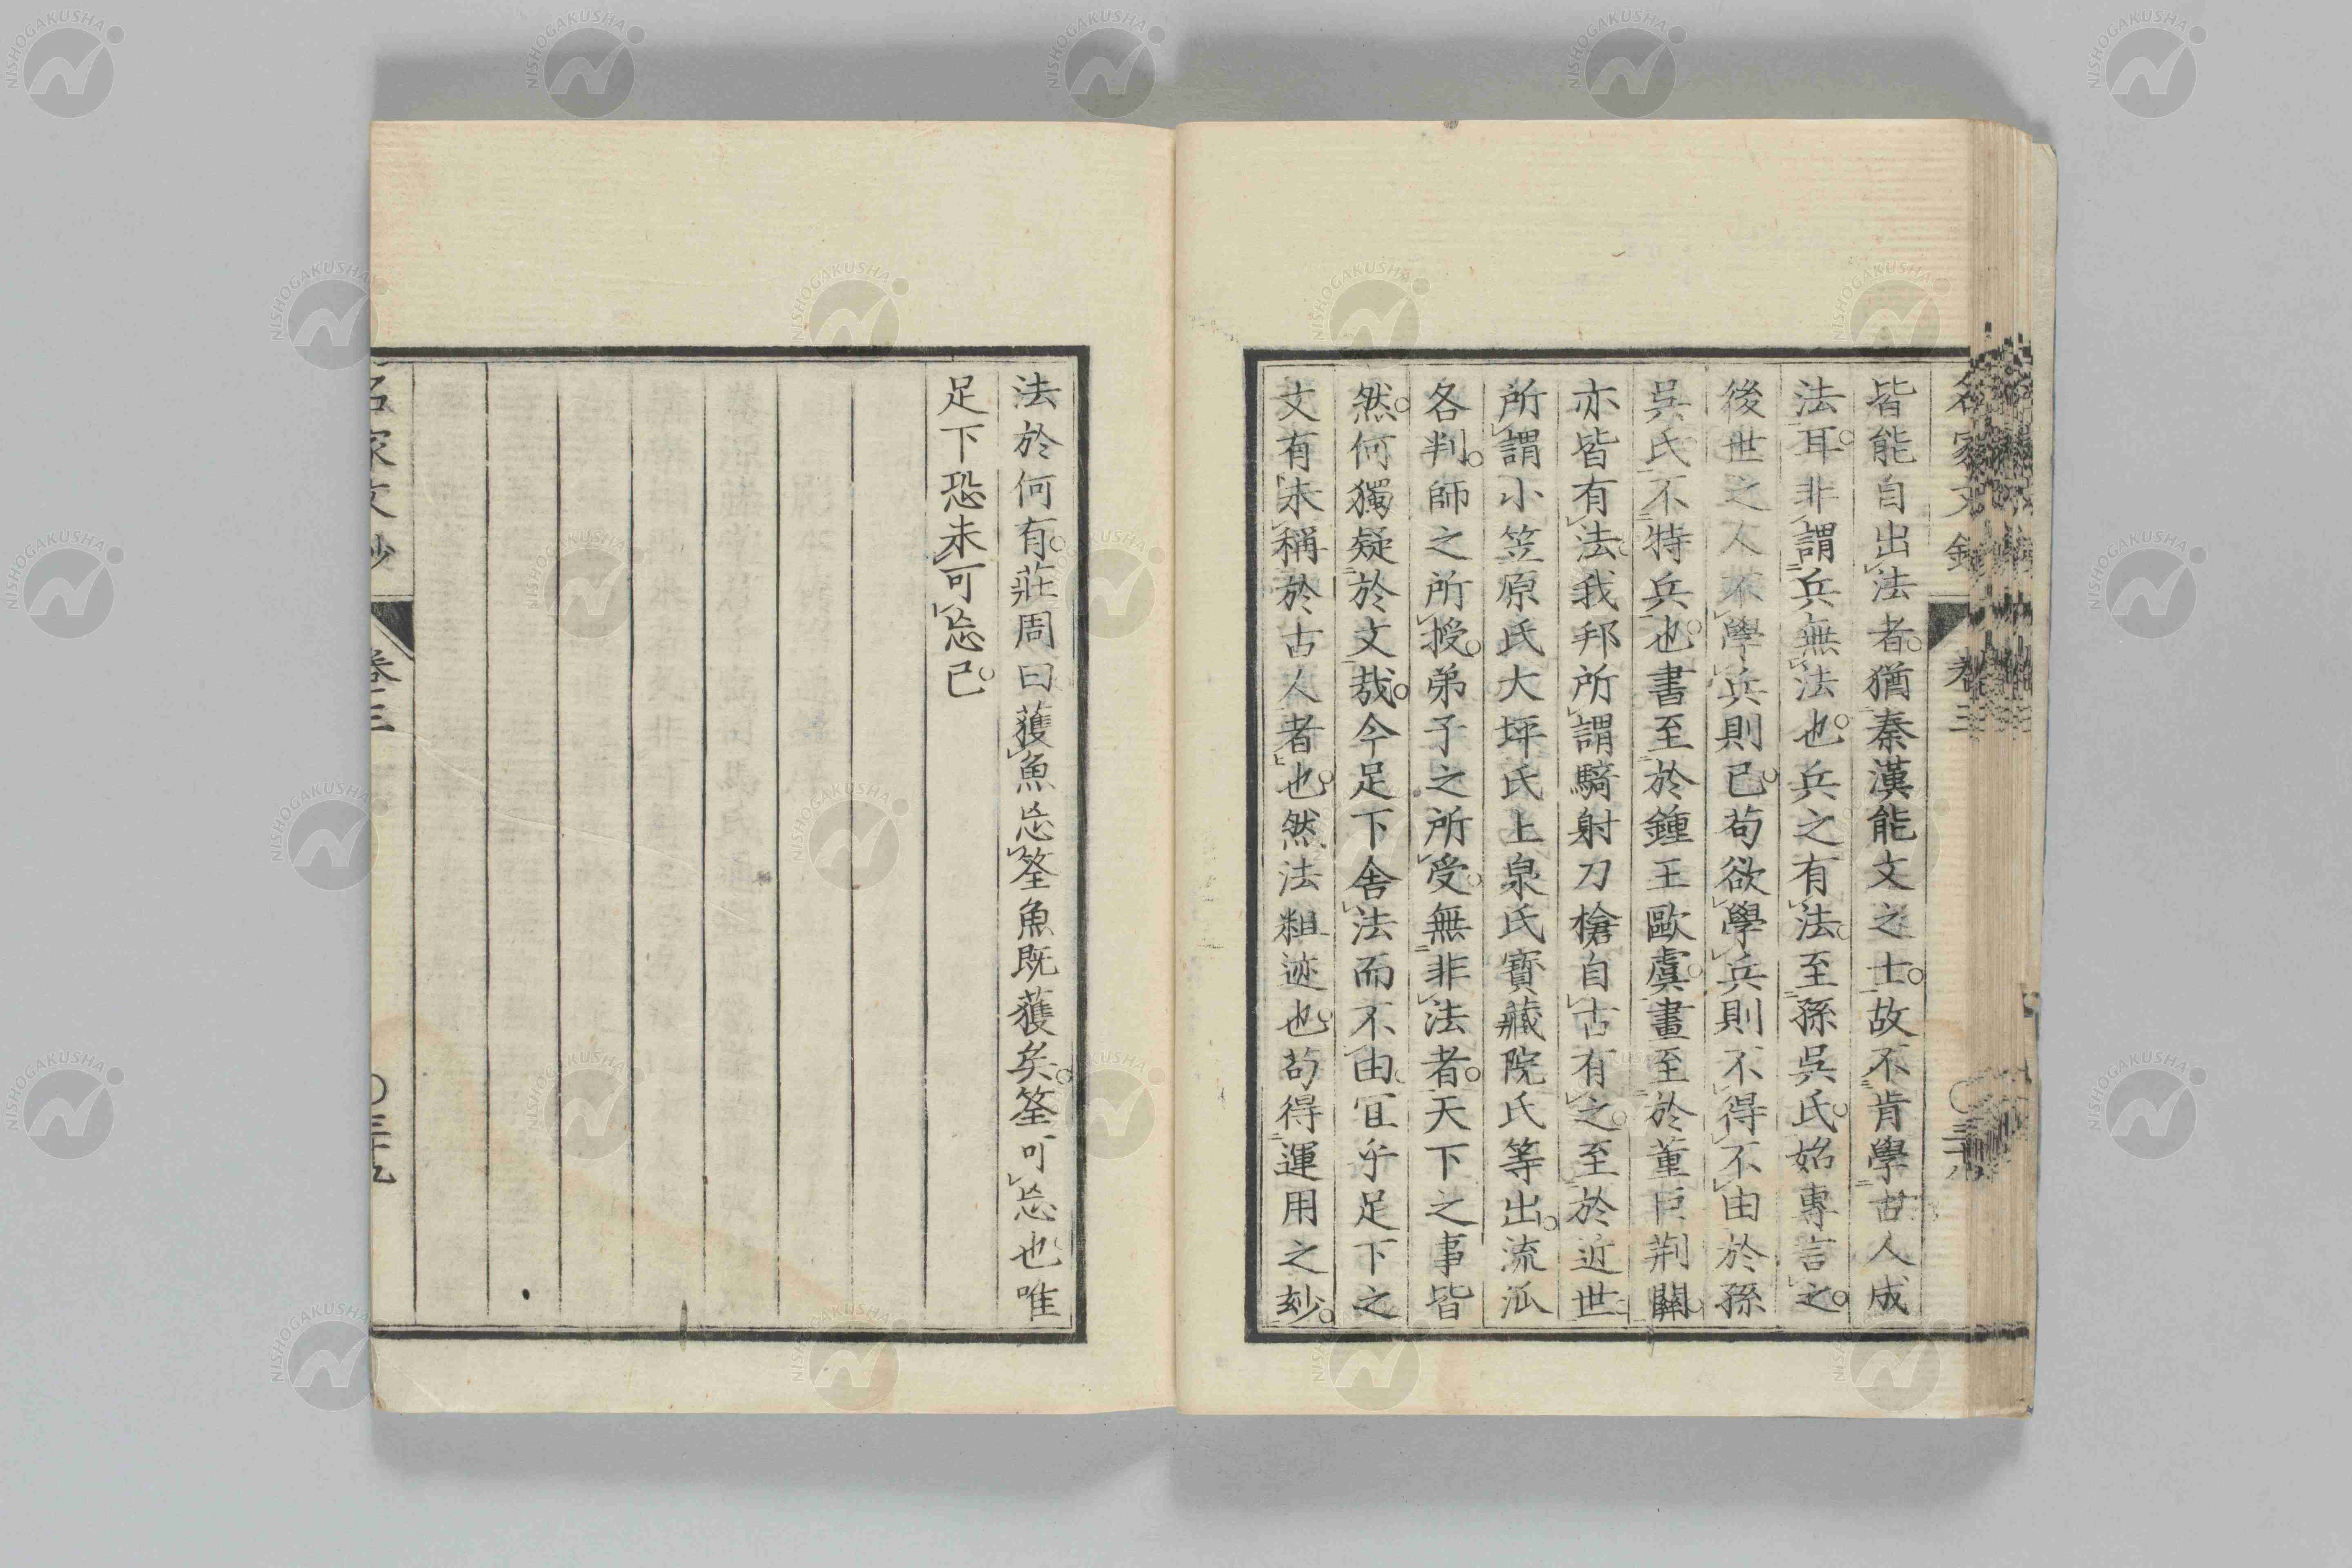 名家文鈔 卷三 三十八
皆能自出法者。猶秦漢能文之士。故不肯學古人成
法耳。非謂兵無法也。兵之有法。至孫吳氏。始專言之。
後世之人不學兵則已。苟欲學兵則不得不由於孫
吳氏。不特兵也。書至於鍾王歐虞。畫至於董巨荊關。
亦皆有法。我邦所謂騎射刀槍自古有之。至於近世。
所謂小笠原氏大坪氏上泉氏寶藏院氏等出。流派
各判。師之所授。弟子之所受。無非法者。天下之事皆
然。何獨疑於文哉。今足下舍法而不由。宜乎足下之
文有未稱於古人者也。然法粗迹也。苟得運用之妙。
法於何有。莊周曰獲魚忘筌魚既獲矣。筌可忘也。唯
足下恐未可忘已。
名家文鈔 卷三 〇三十九
NISHOGAKUSHA